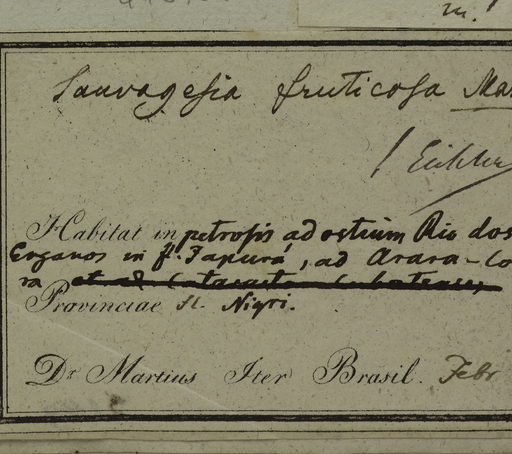 m.
Sauvagesia fruticosa Mar
Eichler
Habitat in petrosis ad ostium Rio dos
Enganos in fl. Japurá, ad Arara-Co
ra et ad Cataractam Cubatensem,
Provinciae fl. Nigri.
Dr Martius Iter Brasil. Febr